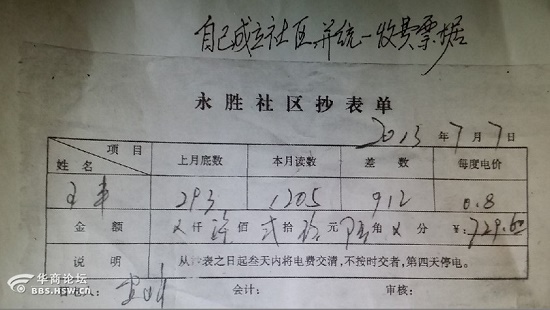 自己成立社区,并统一收费票据
永胜社区抄表单
2013 年 7 月 7 日
项目 姓名 上月底数 本月读数 差数 每度电价
王 293 1205 912 0.8
金额 X 仟 佰 贰 拾 元 陆 角 X 分 ¥: 729.60
说明 从沙表之日起叁天内将电费交清,不按时交者,第四天停电。
人: 会计: 审核:
华商论坛
BBS.HSW.CN